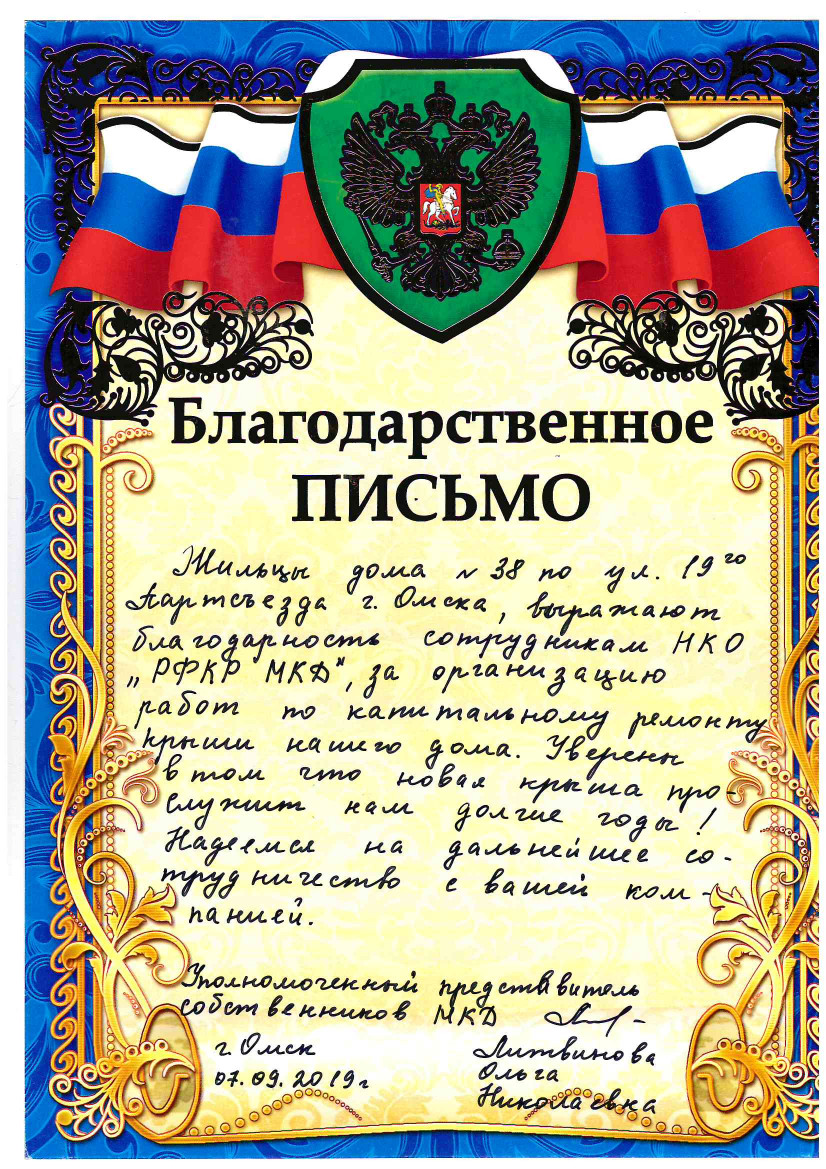 Благодарственное
ПИСЬМО
Жильцы дома № 38 по ул. 19го
Партсъезда г. Омска, выражают
благодарность сотрудникам НКО
„РФКР МКД", за организацию
работ по капитальному ремонту
крыши нашего дома. Уверены
в том что новая крыша про-
служит нам долгие годы!
Надеемся на дальнейшее со-
трудничество с вашей ком-
панией.
Уполномоченный представитель
собственников МКД
г. Омск Литвинова
07.09.2019г Ольга
Николаевна